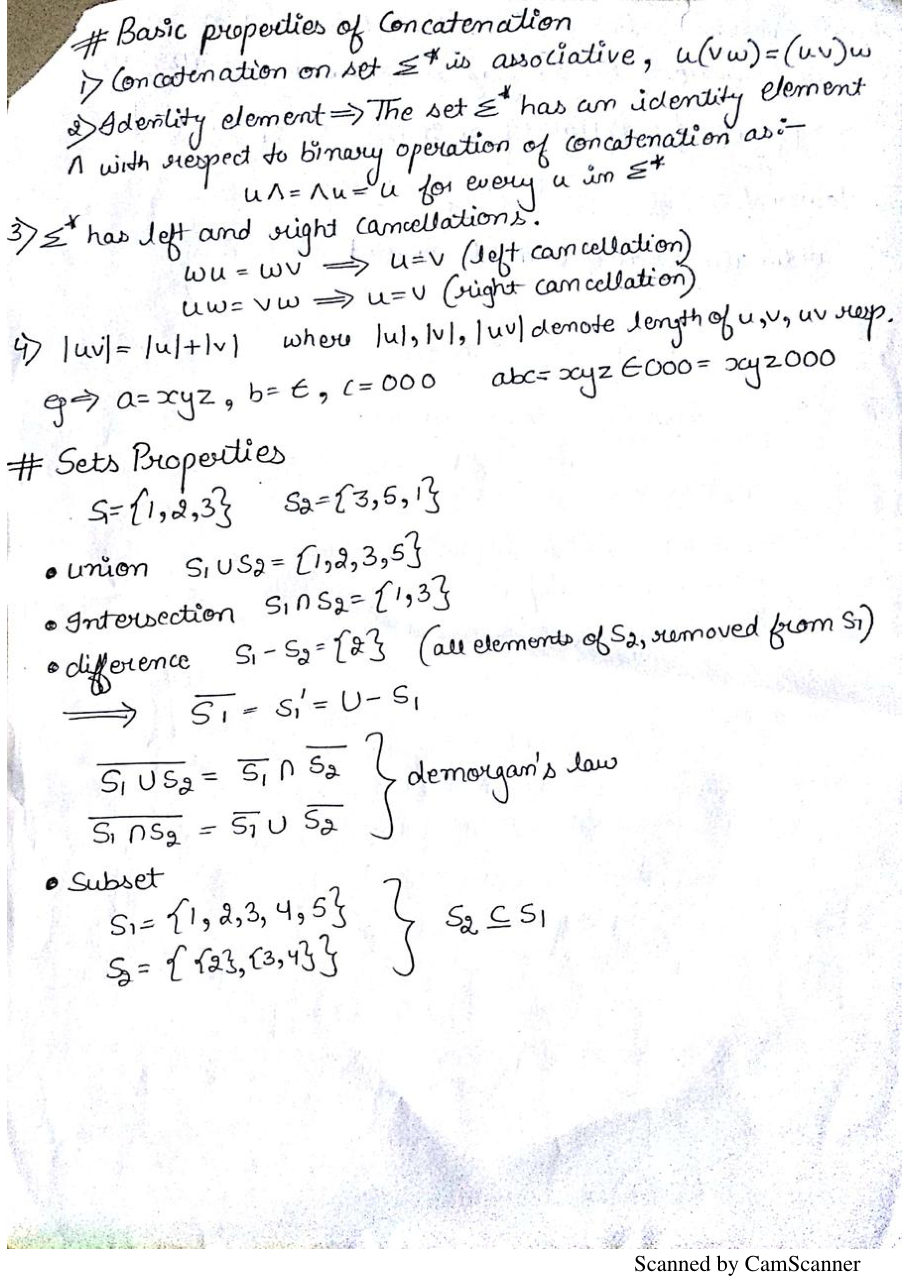 # Basic properties of Concatenation
1) Concatenation on set Σ* is associative, u(vw)=(uv)w
2) Identity element ⇒ The set Σ* has an identity element
Λ with respect to binary operation of concatenation as:-
uΛ = Λu = u for every u in Σ*
3) Σ* has left and right cancellations.
wu = wv ⇒ u=v (left cancellation)
uw = vw ⇒ u=v (right cancellation)
4) |uv|= |u|+|v| where |u|, |v|, |uv| denote length of u,v, uv resp.
eg ⇒ a=xyz, b= ϵ, c=000 abc= xyz ϵ000 = xyz000
# Sets Properties
S1={1,2,3} S2={3,5,1}
• union S1 ∪ S2 = {1,2,3,5}
• Intersection S1 ∩ S2 = {1,3}
• difference S1 - S2 = {2} (all elements of S2, removed from S1)
⇒ S̅1̅ = S1' = U - S1
S̅1̅ ̅∪̅ ̅S̅2̅ = S̅1̅ ∩ S̅2̅ } demorgan's law
S̅1̅ ̅∩̅ ̅S̅2̅ = S̅1̅ ∪ S̅2̅
• Subset
S1 = {1, 2, 3, 4, 5} } S2 ⊆ S1
S2 = { {2}, {3,4}}
Scanned by CamScanner